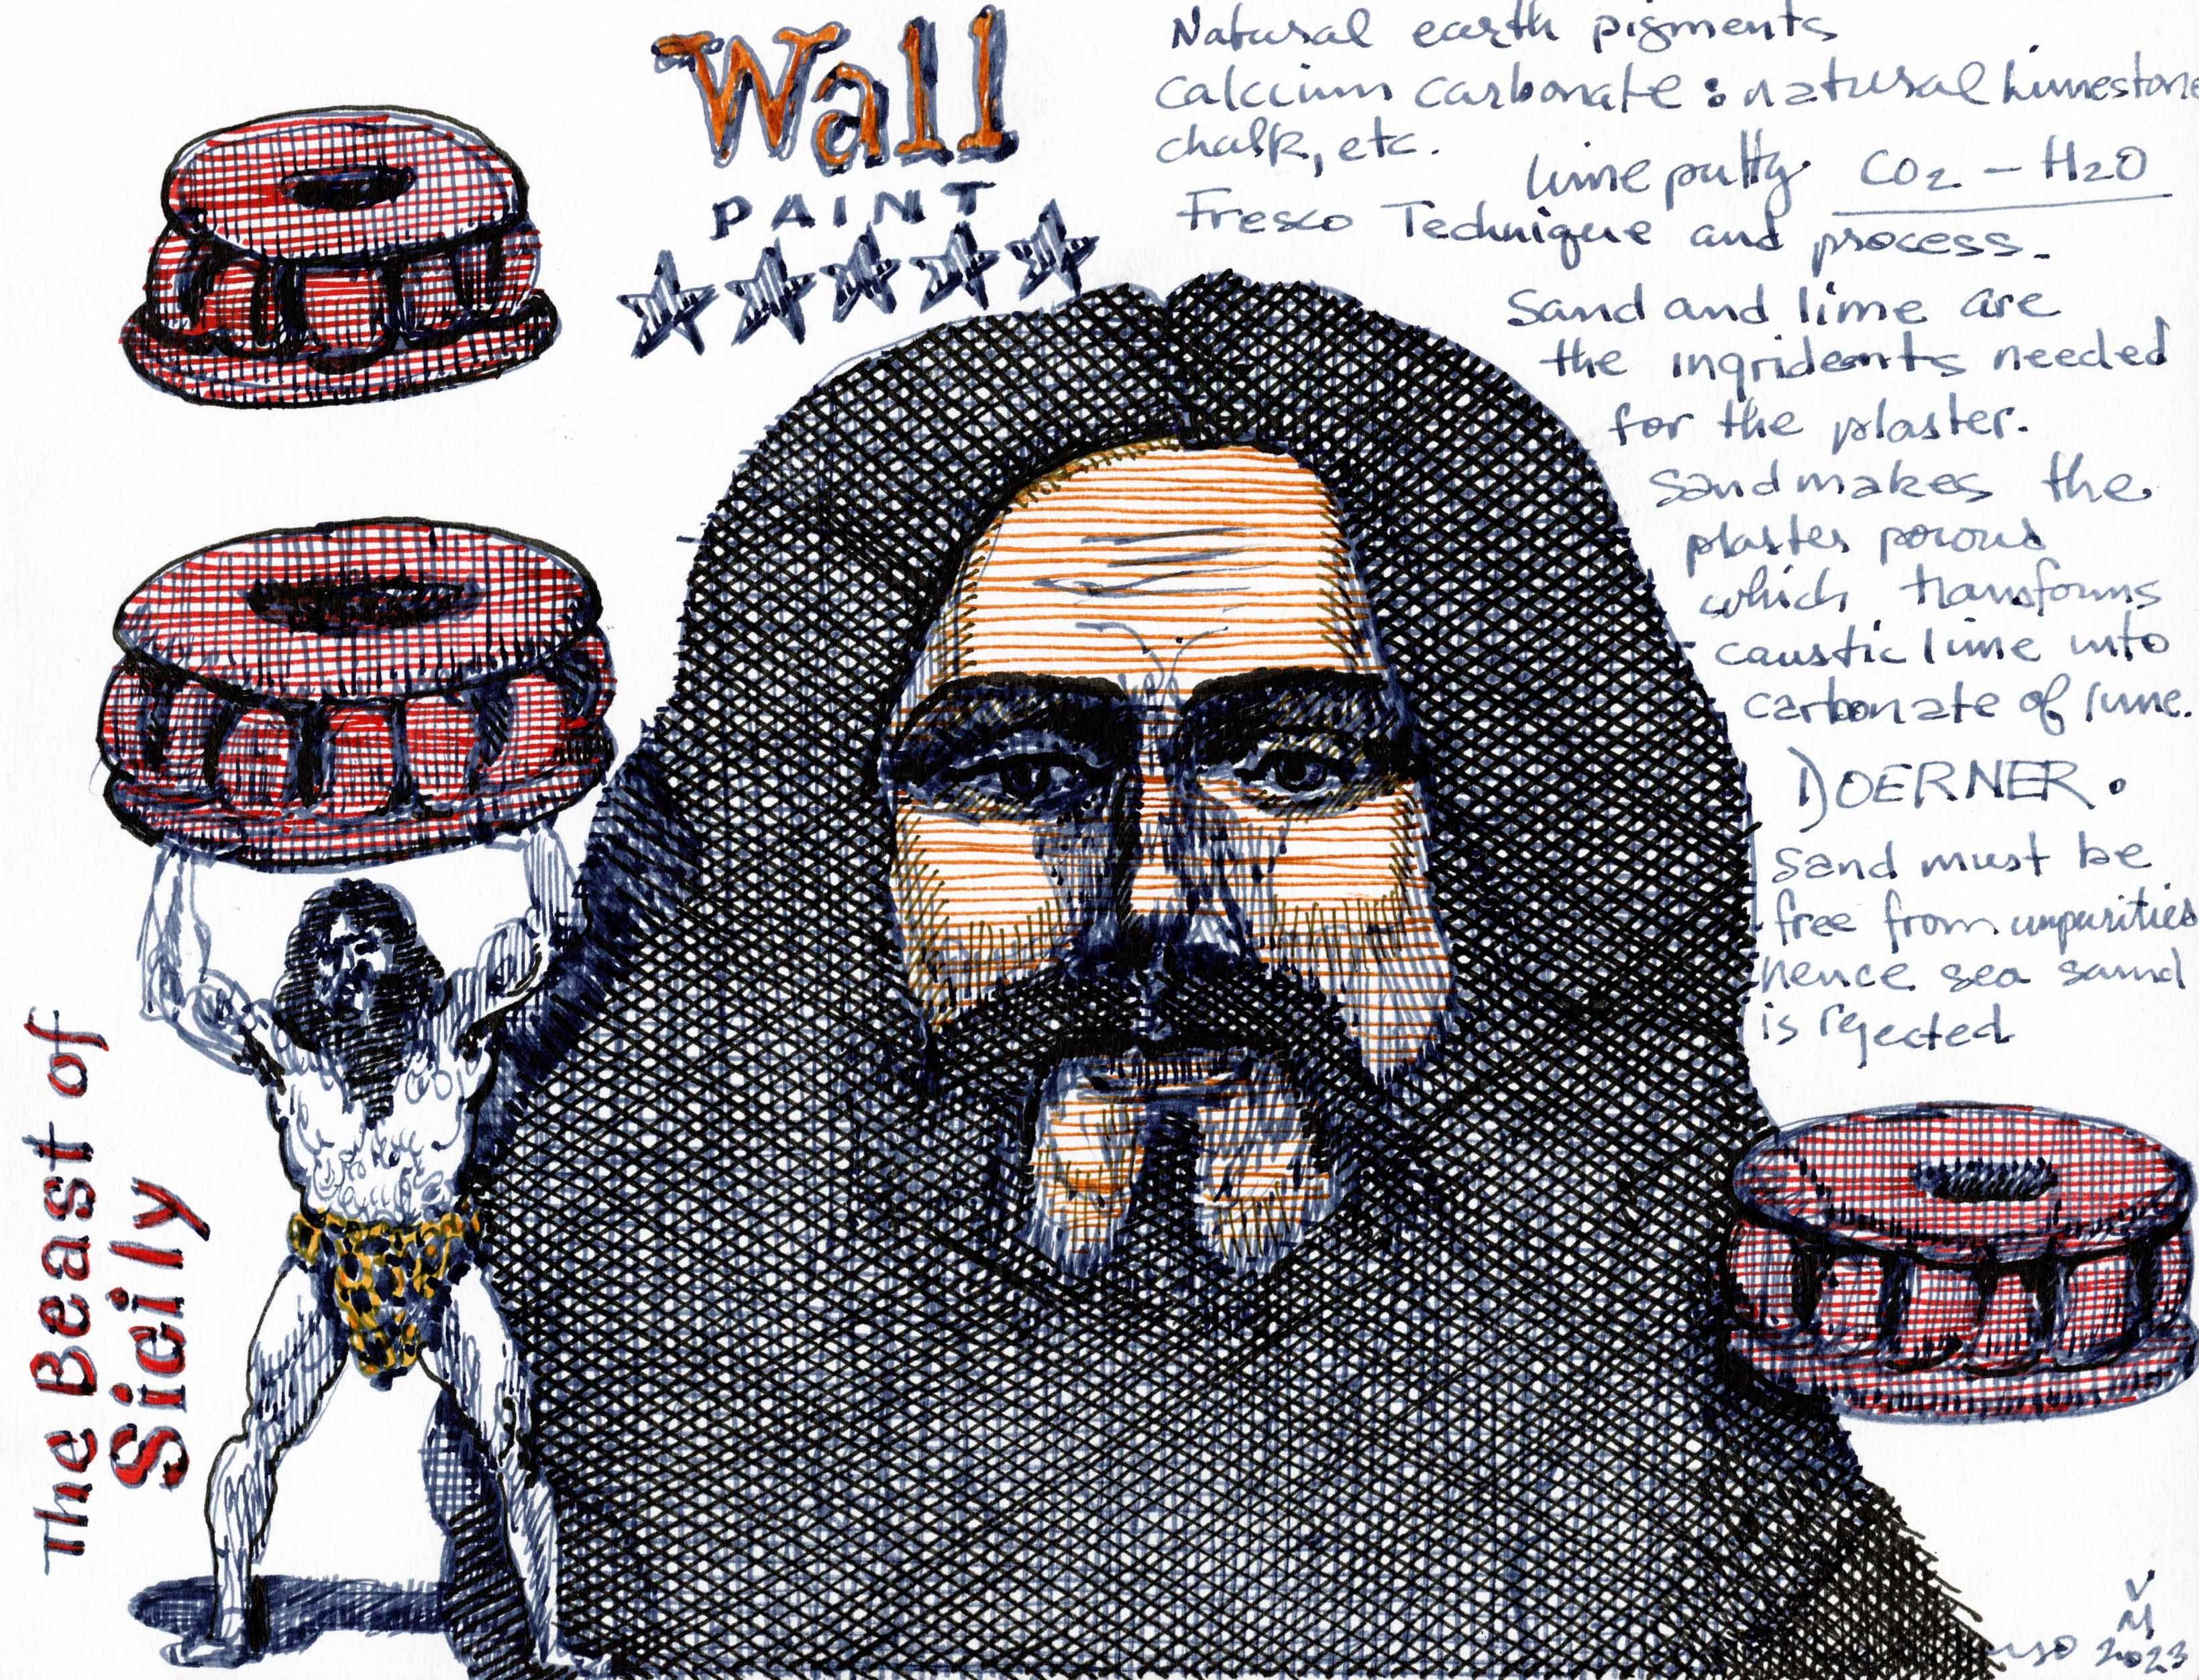 Wall
PAINT
Natural earth pigments
calcium carbonate : natural limestone
chalk, etc.
lime putty CO2 - H2O
Fresco Technique and process.
Sand and lime are
the ingridents needed
for the plaster.
Sand makes the
plaster porous
which transforms
caustic lime into
carbonate of lime.
DOERNER.
Sand must be
free from impurities
hence sea sand
is rejected
The Beast of
Sicily
V
M
2023